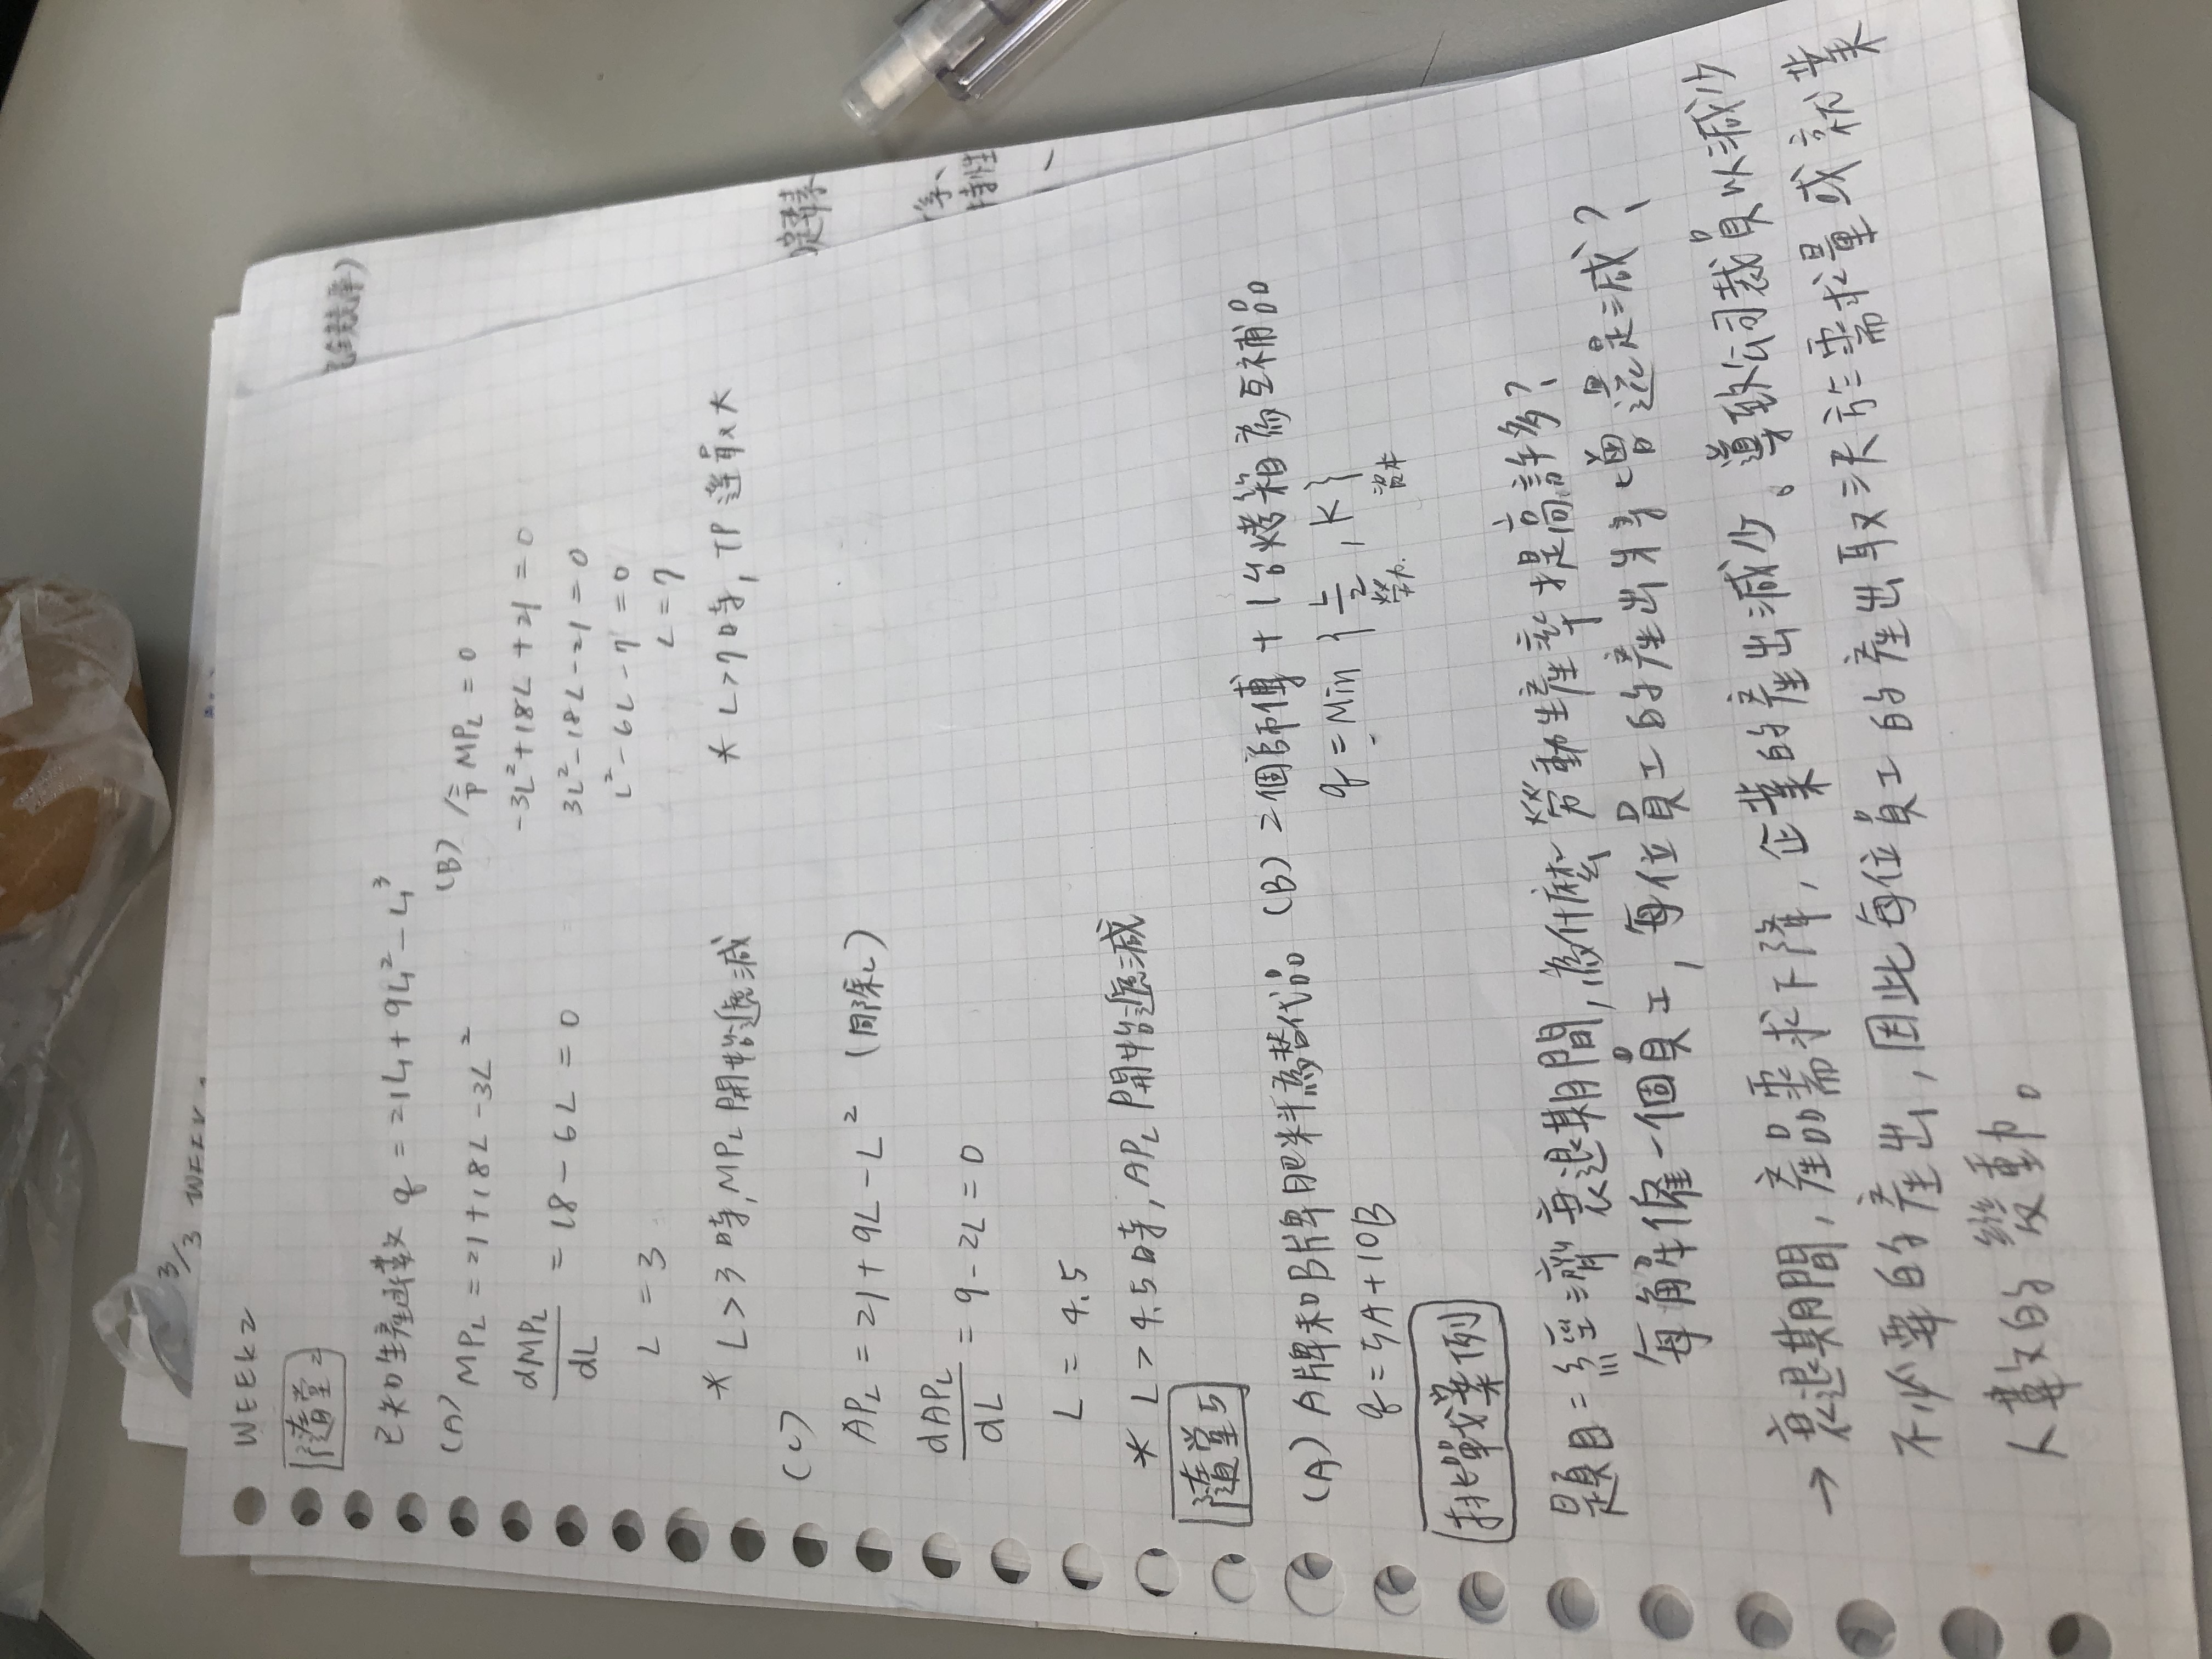 3/3 WEEK
WEEK2
隨堂2
已知生產函數 q = 21L + 9L² - L³
(A) MPL = 21 + 18L - 3L²
dMPL
dL
= 18 - 6L = 0
L = 3
* L > 3 時, MPL 開始遞減
(B) 令 MPL = 0
-3L² + 18L + 21 = 0
3L² - 18L - 21 = 0
L² - 6L - 7 = 0
L = 7
* L > 7 時, TP 達最大
(C)
APL = 21 + 9L - L² (同除L)
dAPL
dL
= 9 - 2L = 0
L = 4.5
* L > 4.5 時, APL 開始遞減
隨堂5
(A) A牌和B牌肥料為替代品
q = 5A + 10B
(B) 2個師傅 + 1台烤箱為互補品
q = Min { L/2 , K }
勞力 資本
挑戰案例
題目 = 經濟衰退期間, 為什麼勞動生產率提高許多?
每解僱一個員工, 每位員工的產出將增還是減?
→ 衰退期間, 產品需求下降, 企業的產出減少。導致公司裁員以減少
不必要的產出, 因此每位員工的產出取決於需求量或就業
人數的變動。
完全競爭)
定要素
特性